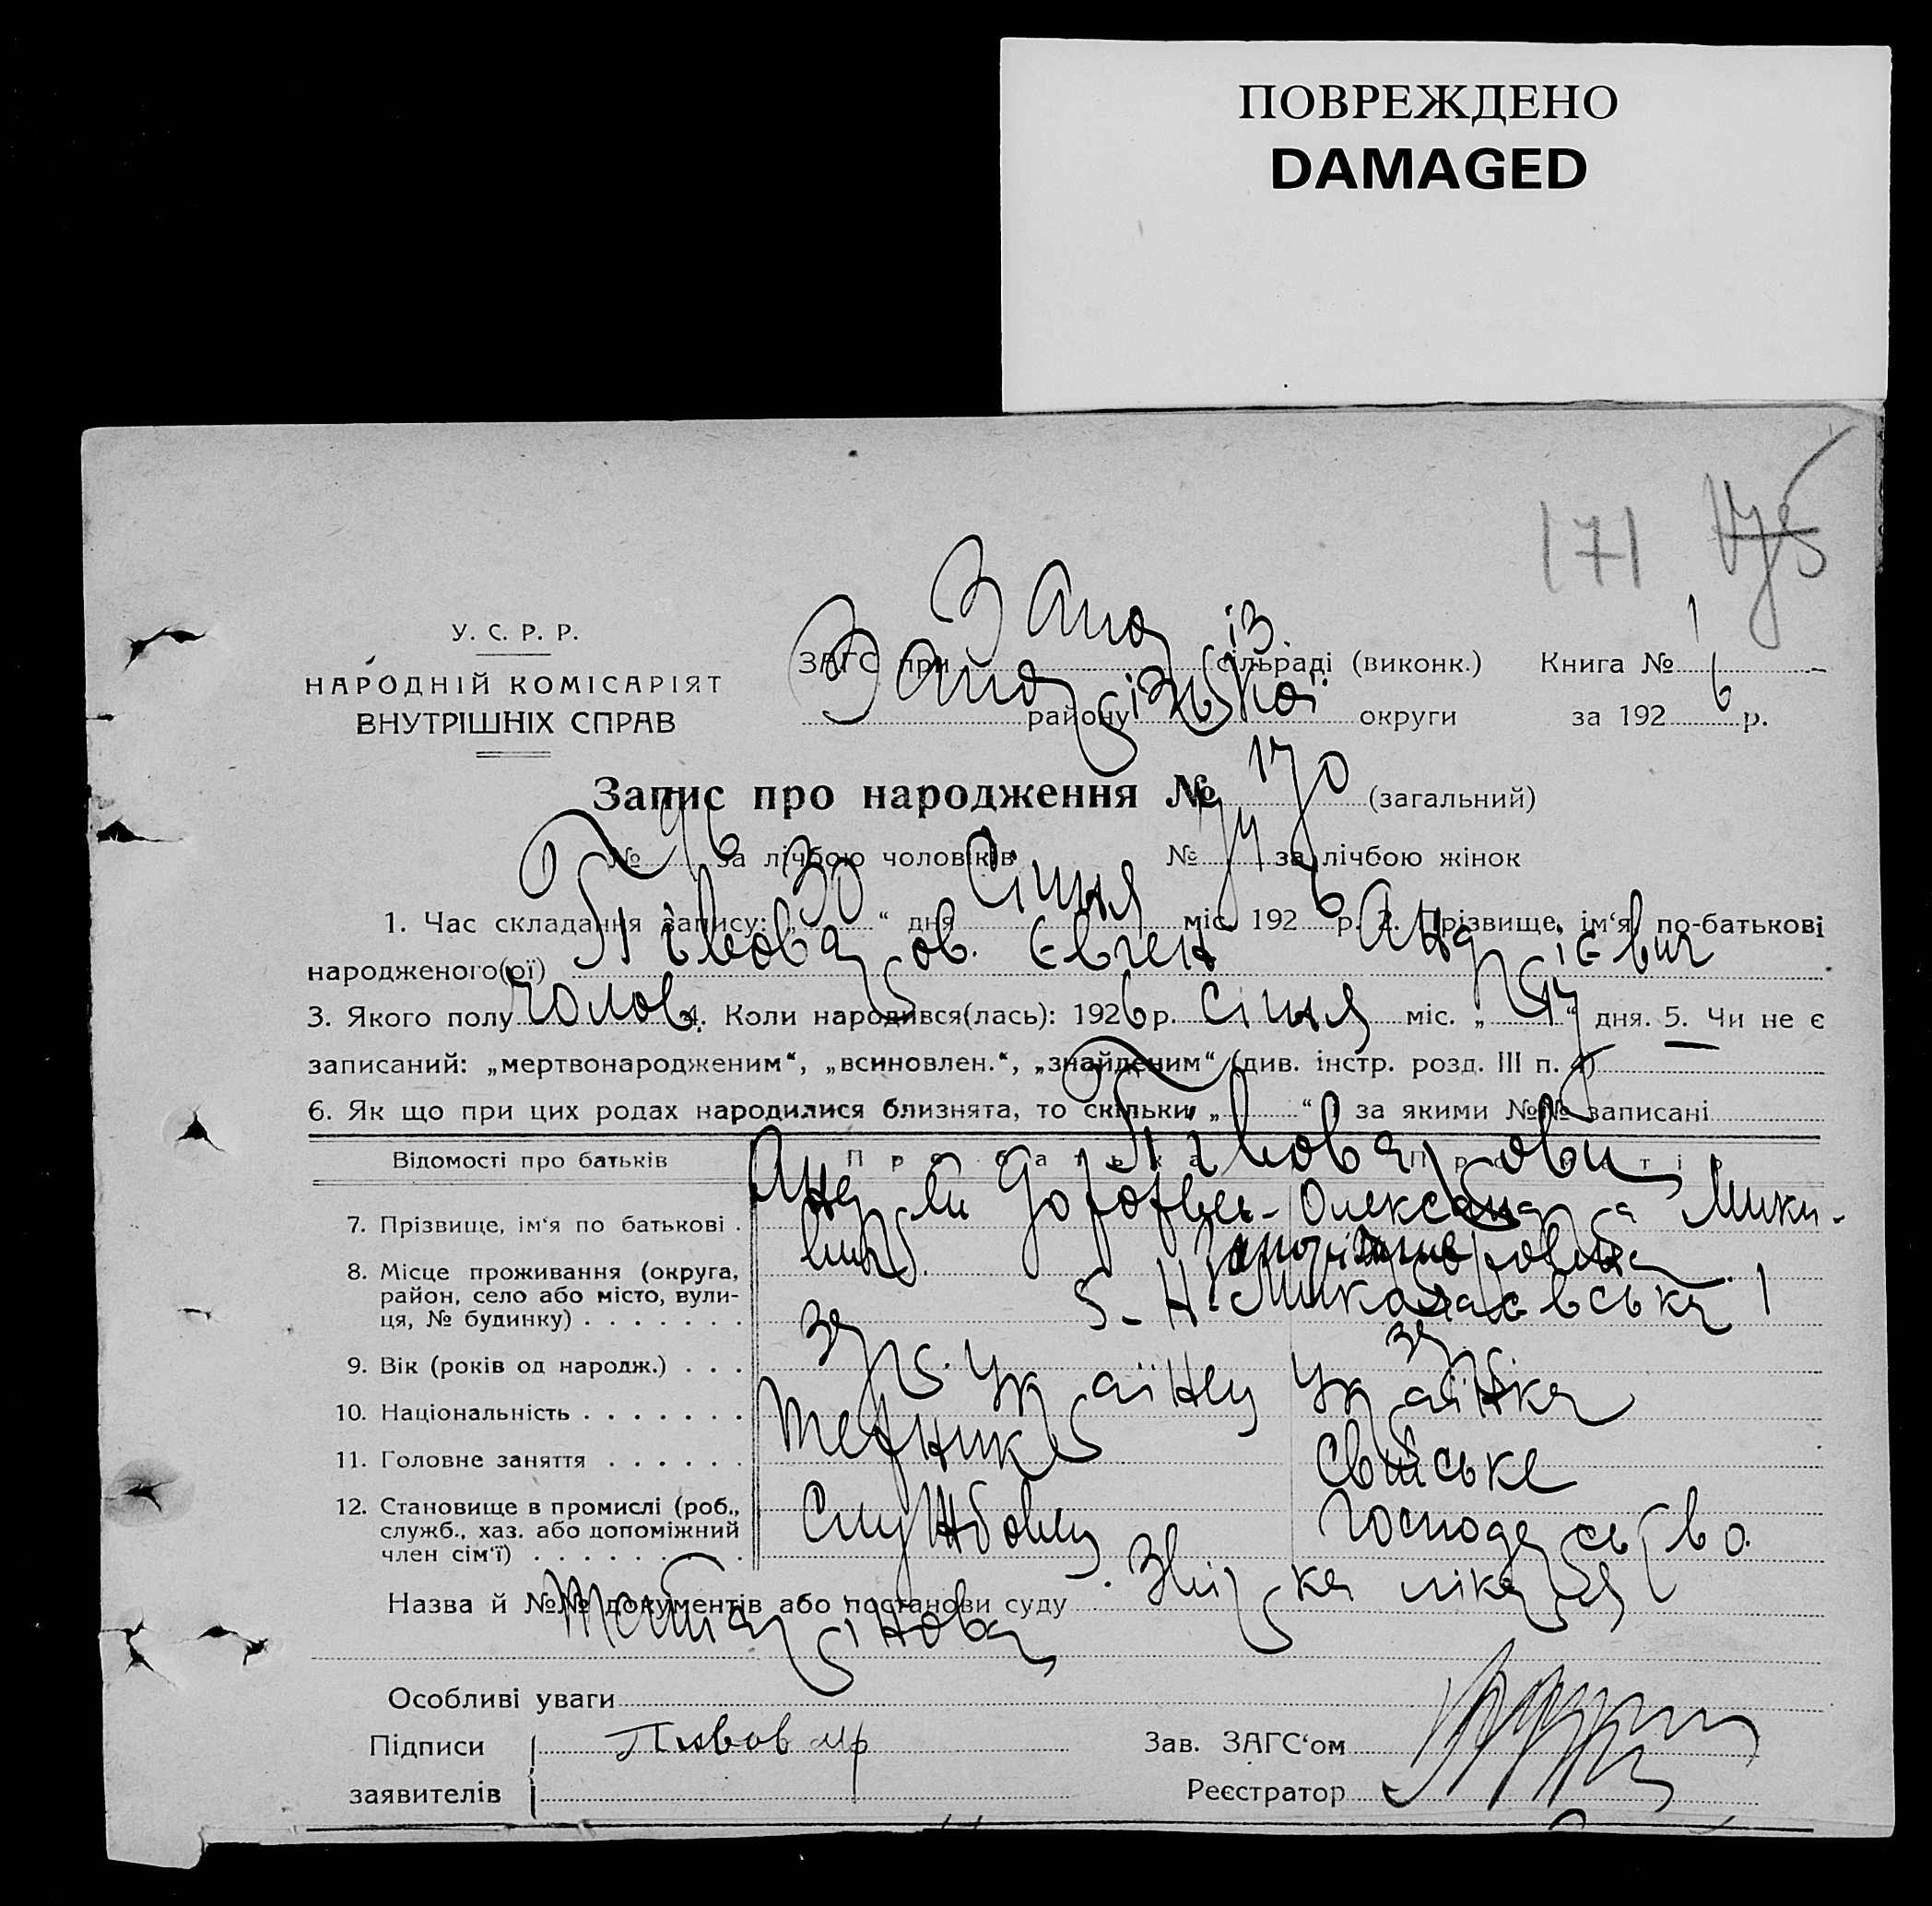 ПОВРЕЖДЕНО
DAMAGED
171 175
У. С. Р. Р.
НАРОДНІЙ КОМІСАРІЯТ
ВНУТРІШНІХ СПРАВ
ЗАГС при Запоріз. сільраді (виконк.) Книга № 1
Запорізької району округи за 1926 р.
Запис про народження № 170 (загальний)
№ 96 за лічбою чоловіків № 74 за лічбою жінок
1. Час складання запису: „30“ дня Січня міс. 1926 р. 2. Прізвище, ім‘я, по-батькові
народженого(ої) Півоваров. Євген Андрієвич
3. Якого полу Чолов. 4. Коли народився(лась): 1926 р. Січня міс. „14“ дня. 5. Чи не є
записаний: „мертвонародженим“, „всиновлен.“, „знайденим“ (див. інстр. розд. III п. 4)
6. Як що при цих родах народилися близнята, то скільки „ “ і за якими №№ записані
Відомості про батьків Про батька Про матір
Півоварови
7. Прізвище, ім‘я по батькові . Андрій Дорофєє- Олександра Мики-
вич
8. Місце проживання (округа,
район, село або місто, вули-
ця, № будинку) . . . . . . . 5-Н. Миколаєвська 1
9. Вік (років од народж.) . . . 32 р. 32 р.
10. Національність . . . . . . . Українець Українка
11. Головне заняття . . . . . . технік Свійське
12. Становище в промислі (роб., Службовець господарство
служб., хаз. або допоміжний
член сім‘ї) . . . . . . . . .
Назва й №№ документів або постанови суду Звірка лікаря
Особливі уваги
Підписи Пивовар Зав. ЗАГС‘ом
заявителів Реєстратор